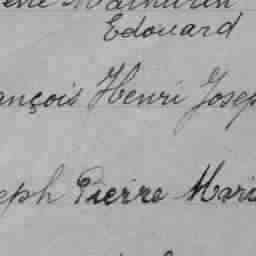 Mathurin
Edouard
ançois Henri Josep
eph Pierre Mari